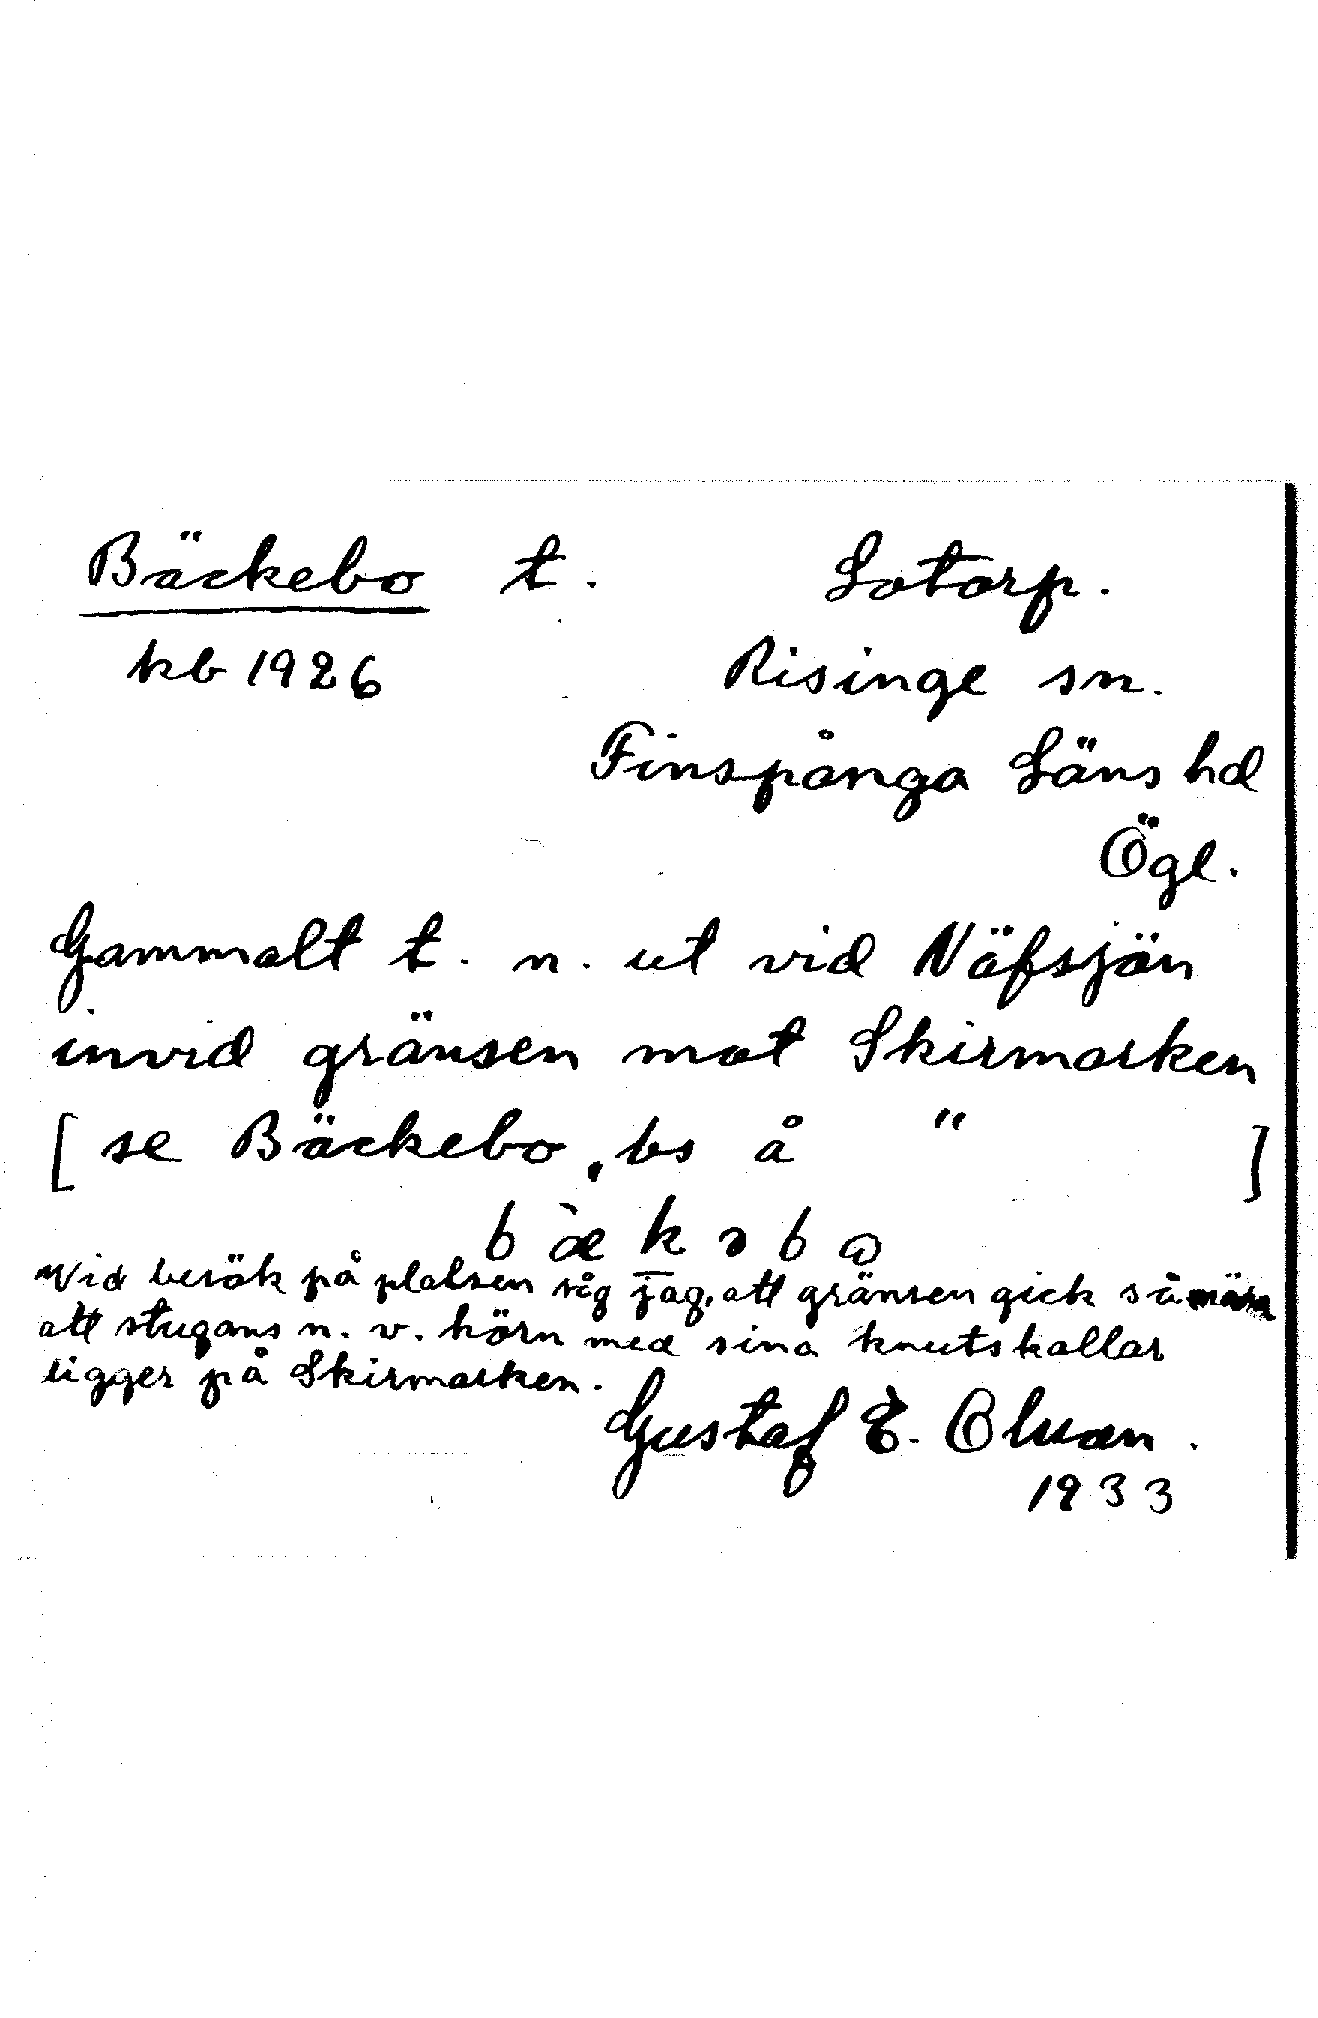 Bäckebo t. Lotorp.
kb 1926 Risinge sn.
Finspånga Läns hd
Ögl.
Gammalt t. n. ut vid Näfsjön
invid gränsen mot Skirmarken
[ se Bäckebo, bs å " ]
b æ̀ k ə b ω
Vid besök på platsen såg jag, att gränsen gick så nära
att stugans n. v. hörn med sina knutskallar
ligger på Skirmarken.
Gustaf E.
1933